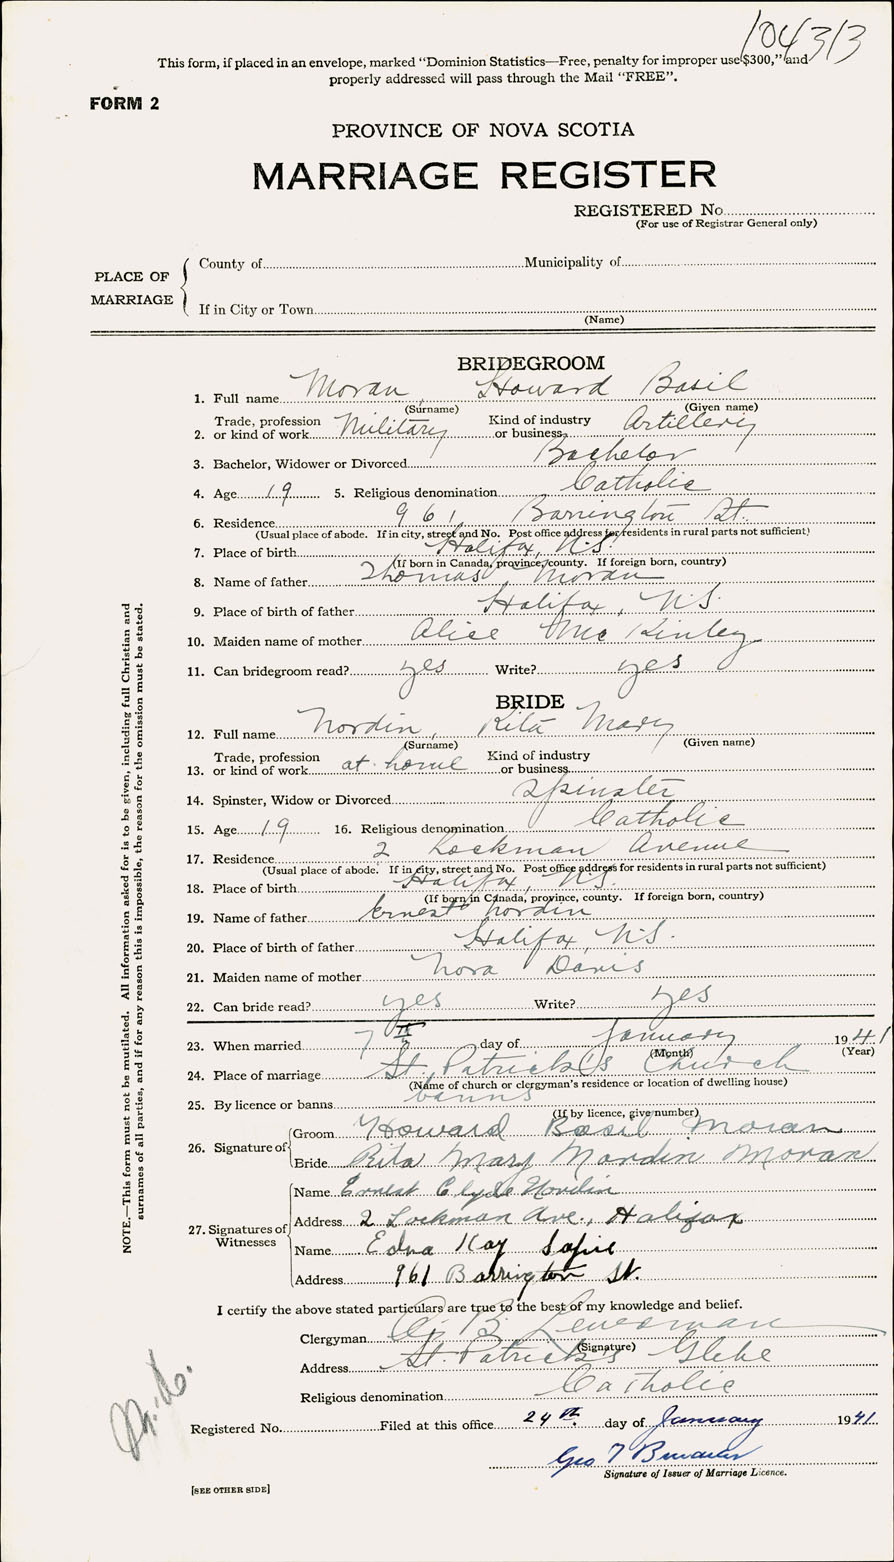 104313
This form, if placed in an envelope, marked "Dominion Statistics—Free, penalty for improper use $300," and
properly addressed will pass through the Mail "FREE".
FORM 2
PROVINCE OF NOVA SCOTIA
MARRIAGE REGISTER
REGISTERED No.
(For use of Registrar General only)
PLACE OF MARRIAGE
County of Municipality of
If in City or Town
(Name)
BRIDEGROOM
1. Full name Moran, Howard Basil
(Surname) (Given name)
2. Trade, profession or kind of work Military Kind of industry or business Artillery
3. Bachelor, Widower or Divorced Bachelor
4. Age 19 5. Religious denomination Catholic
6. Residence 961 Barrington St.
(Usual place of abode. If in city, street and No. Post office address for residents in rural parts not sufficient)
7. Place of birth Halifax, N.S.
(If born in Canada, province, county. If foreign born, country)
8. Name of father Thomas Moran
9. Place of birth of father Halifax, N.S.
10. Maiden name of mother Alice Mc Kinley
11. Can bridegroom read? yes Write? yes
BRIDE
12. Full name Nordin, Rita Mary
(Surname) (Given name)
13. Trade, profession or kind of work at home Kind of industry or business
14. Spinster, Widow or Divorced Spinster
15. Age 19 16. Religious denomination Catholic
17. Residence 2 Lockman Avenue
(Usual place of abode. If in city, street and No. Post office address for residents in rural parts not sufficient)
18. Place of birth Halifax, N.S.
(If born in Canada, province, county. If foreign born, country)
19. Name of father Ernest Nordin
20. Place of birth of father Halifax, N.S.
21. Maiden name of mother Nora Davis
22. Can bride read? yes Write? yes
23. When married 7th day of January 1941
(Month) (Year)
24. Place of marriage St. Patrick's Church
(Name of church or clergyman's residence or location of dwelling house)
25. By licence or banns banns
(If by licence, give number)
26. Signature of
Groom Howard Basil Moran
Bride Rita Mary Nordin Moran
27. Signatures of Witnesses
Name Ernest Clyde Nordin
Address 2 Lockman Ave., Halifax
Name Edna Kay
Address 961 Barrington St.
I certify the above stated particulars are true to the best of my knowledge and belief.
Clergyman B.
(Signature)
Address St. Patrick's Glebe
Religious denomination Catholic
Registered No. Filed at this office 24th day of January 1941
Geo T
Signature of Issuer of Marriage Licence.
[SEE OTHER SIDE]
NOTE.—This form must not be mutilated. All information asked for is to be given, including full Christian and
surnames of all parties, and if for any reason this is impossible, the reason for the omission must be stated.